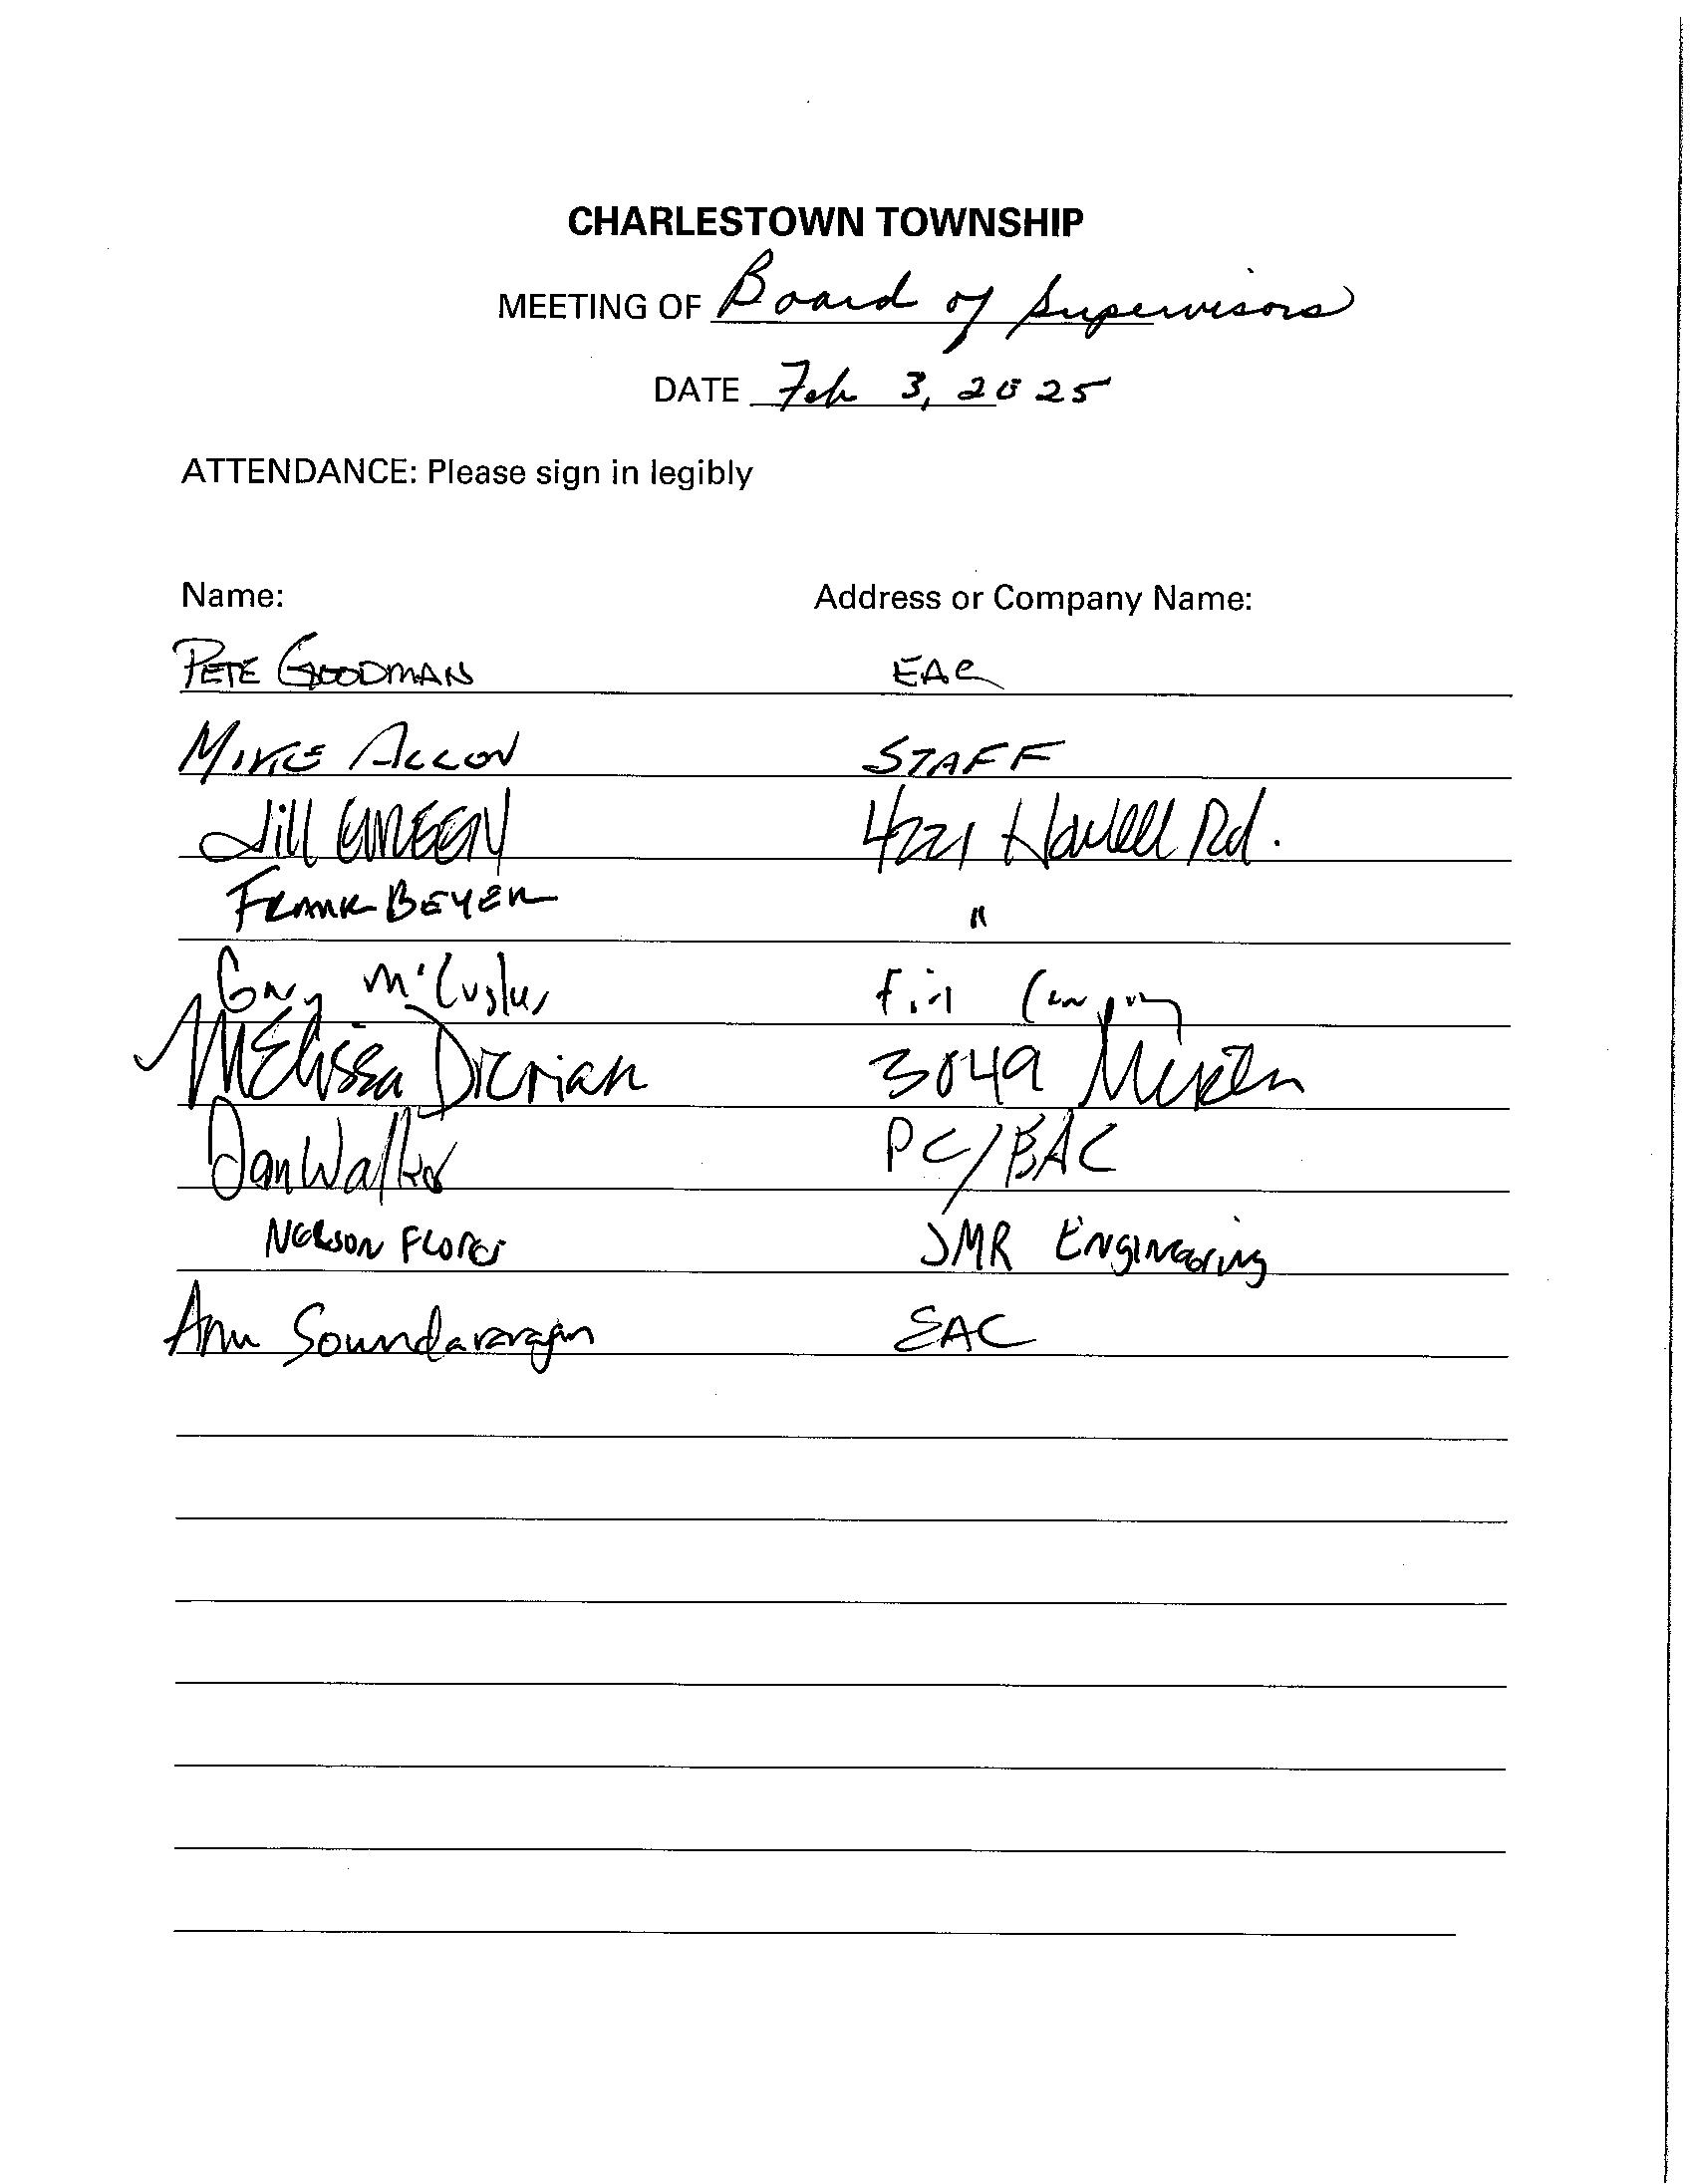 CHARLESTOWN TOWNSHIP
MEETING OF Board of Supervisors
DATE Feb 3, 2025
ATTENDANCE: Please sign in legibly
Name: Address or Company Name:
PETE GOODMAN EAC
MIKE ALLON STAFF
Jill GREEN 4221 Howell Rd.
FRANK BEYER "
Fire Company
MElissa 3049
Dan Walker PC/BAC
NELSON FLORES JMR ENGINEERING
Anu Soundararajan EAC